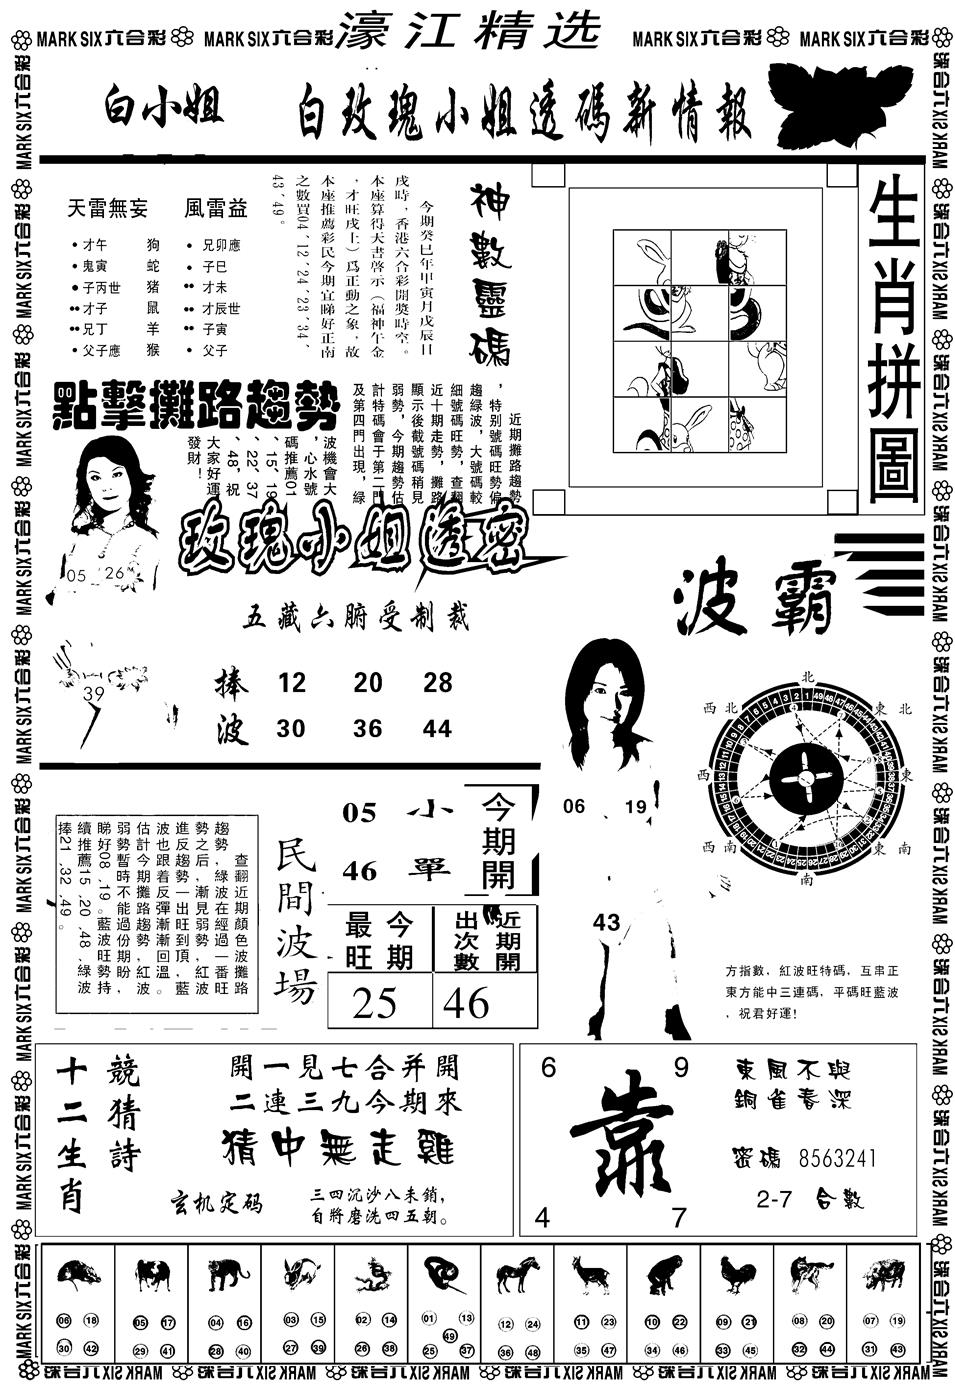 MARK SIX六合彩 MARK SIX六合彩 濠江精选 MARK SIX六合彩 MARK SIX六合彩
白小姐 白玫瑰小姐透碼新情報
天雷無妄 風雷益
才午 狗 兄卯應
鬼寅 蛇 子巳
子丙世 猪 才未
才子 鼠 才辰世
兄丁 羊 子寅
父子應 猴 父子
神數靈碼
今期癸巳年甲寅月戊辰日
戌時，香港六合彩開獎時空。
本座算得天書啓示（福神午金
，才旺戌土）爲正動之象，故
本座推薦彩民今期宜睇好正南
之數買04、12、24、23、34、
43、49。
生肖拼圖
點擊攤路趨勢
近期攤路趨勢
，特別號碼旺勢偏
趨綠波，大號碼較
細號碼旺勢，查翻
近十期走勢，攤路
顯示後截號碼稍見
弱勢，今期趨勢估
計特碼會于第二門
及第四門出現，綠
波機會大
，心水號
碼推薦01
、15、19
、22、37
、48，祝
大家好運
發財！
05 26
39
玫瑰小姐透密
五藏六腑受制裁
捧 12 20 28
波 30 36 44
波霸
06 19
43
北
西北 東北
西 東
西南 東南
南
方指數，紅波旺特碼，互串正
東方能中三連碼，平碼旺藍波
，祝君好運！
查翻近期顏色波攤路
趨勢，綠波在經過一番旺
勢之后，漸見弱勢，紅波
進反趨勢一出旺到頂，藍
波也跟着反彈漸漸回溫。
估計今期攤路趨勢紅波
弱勢暫時不能過份期盼，
睇好08、19。藍波旺勢持
續推薦15、20、48、綠波
捧21、32、49。
民間波場
05 小
46 單
今期開
今期最旺
近期開出次數
25 46
競猜詩
十二生肖
開一見七合并開
二連三九今期來
猜中無走雞
玄机定码
三四沉沙八未銷，
自將磨洗四五朝。
6 9
靠
4 7
東風不與
銅雀春深
密碼 8563241
2-7 合數
06 18 05 17 04 16 03 15 02 14 01 13 12 24 11 23 10 22 09 21 08 20 07 19
49
30 42 29 41 28 40 27 39 26 38 25 37 36 48 35 47 34 46 33 45 32 44 31 43